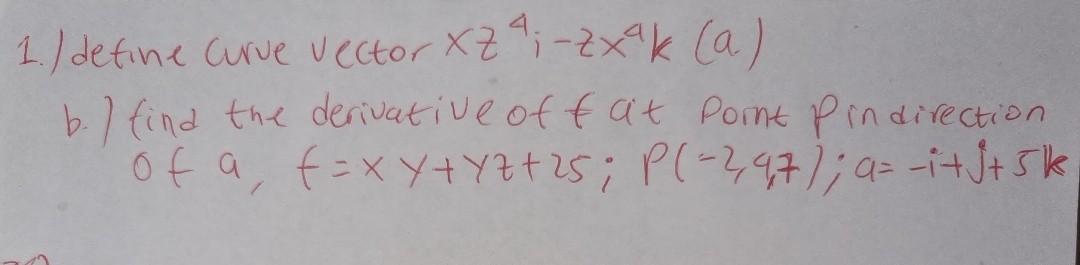 1.) define curve vector xz⁴i-zx⁴k (a)
b.) find the derivative of f at Point P in direction
of a, f=xy+yz+25; P(-2,9,7); a=-i+j+5k